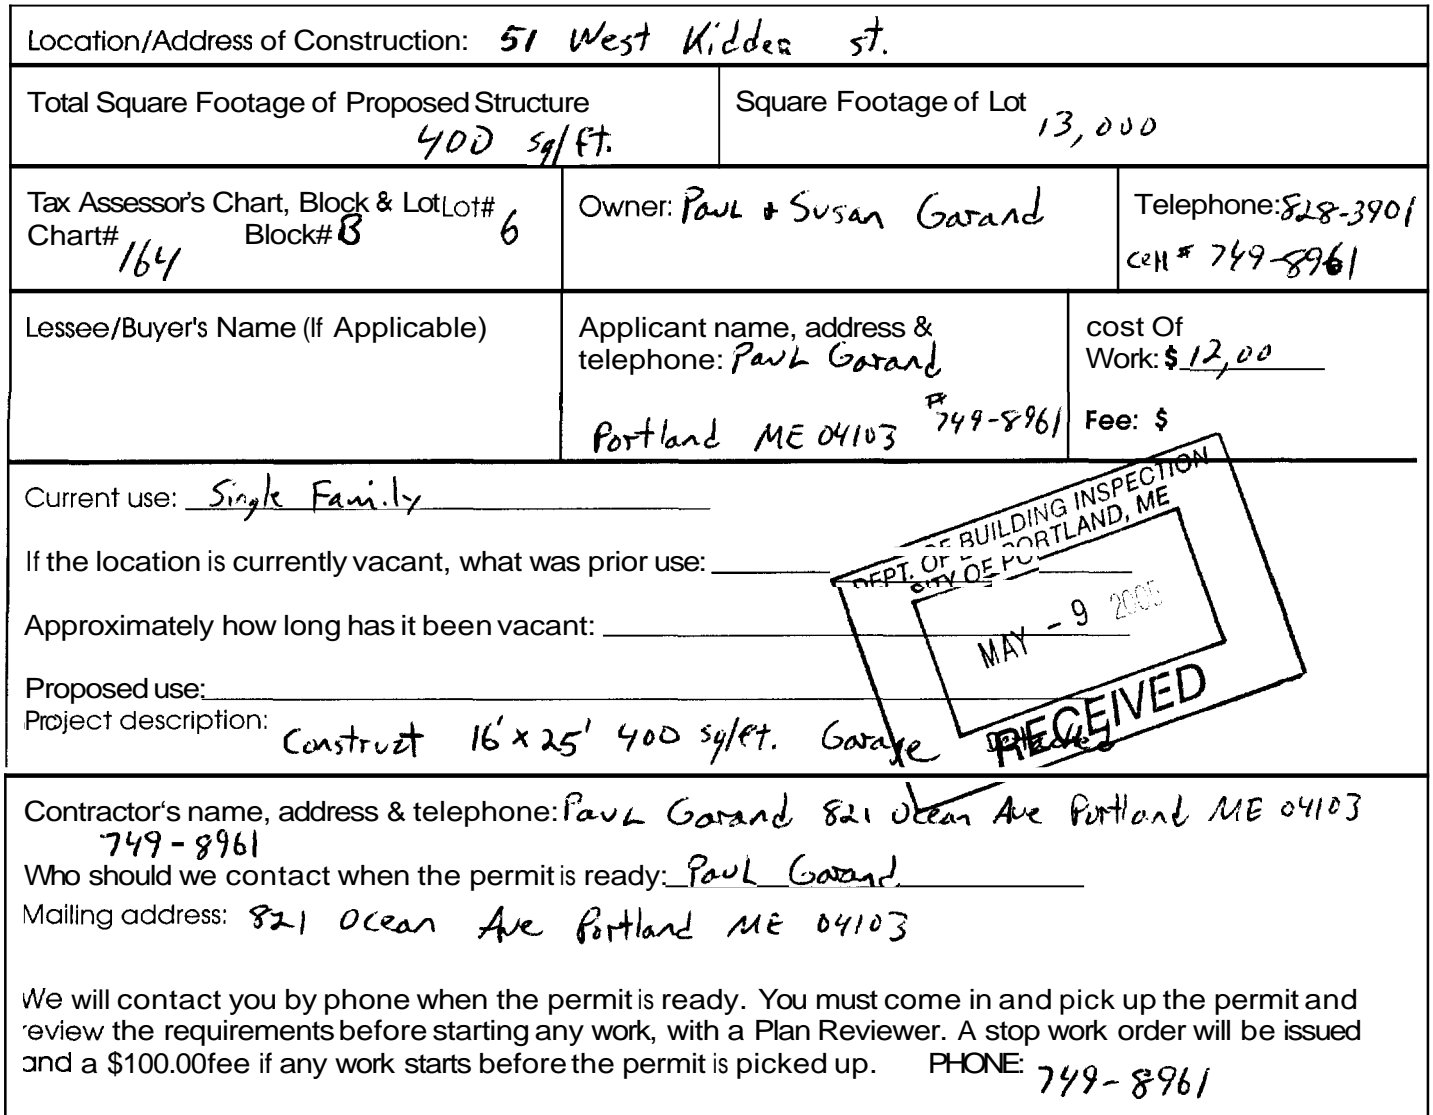 Location/Address of Construction: 51 West Kidder st.
Total Square Footage of Proposed Structure
400 sq/ft.
Square Footage of Lot
13,000
Tax Assessor's Chart, Block & Lot Lot#
Chart# 164 Block# B 6
Owner: Paul + Susan Garand
Telephone: 828-3901
cell # 749-8961
Lessee/Buyer's Name (If Applicable)
Applicant name, address &
telephone: Paul Garand
Portland ME 04103 # 749-8961
cost Of
Work: $ 12,00
Fee: $
Current use: Single Family
If the location is currently vacant, what was prior use:
Approximately how long has it been vacant:
Proposed use:
Project description: Construct 16' x 25' 400 sq/ft. Garage Detached
DEPT. OF BUILDING INSPECTION
CITY OF PORTLAND, ME
MAY - 9 2005
RECEIVED
Contractor's name, address & telephone: Paul Garand 821 Ocean Ave Portland ME 04103
749-8961
Who should we contact when the permit is ready: Paul Garand
Mailing address: 821 Ocean Ave Portland ME 04103
We will contact you by phone when the permit is ready. You must come in and pick up the permit and
review the requirements before starting any work, with a Plan Reviewer. A stop work order will be issued
and a $100.00 fee if any work starts before the permit is picked up. PHONE: 749-8961